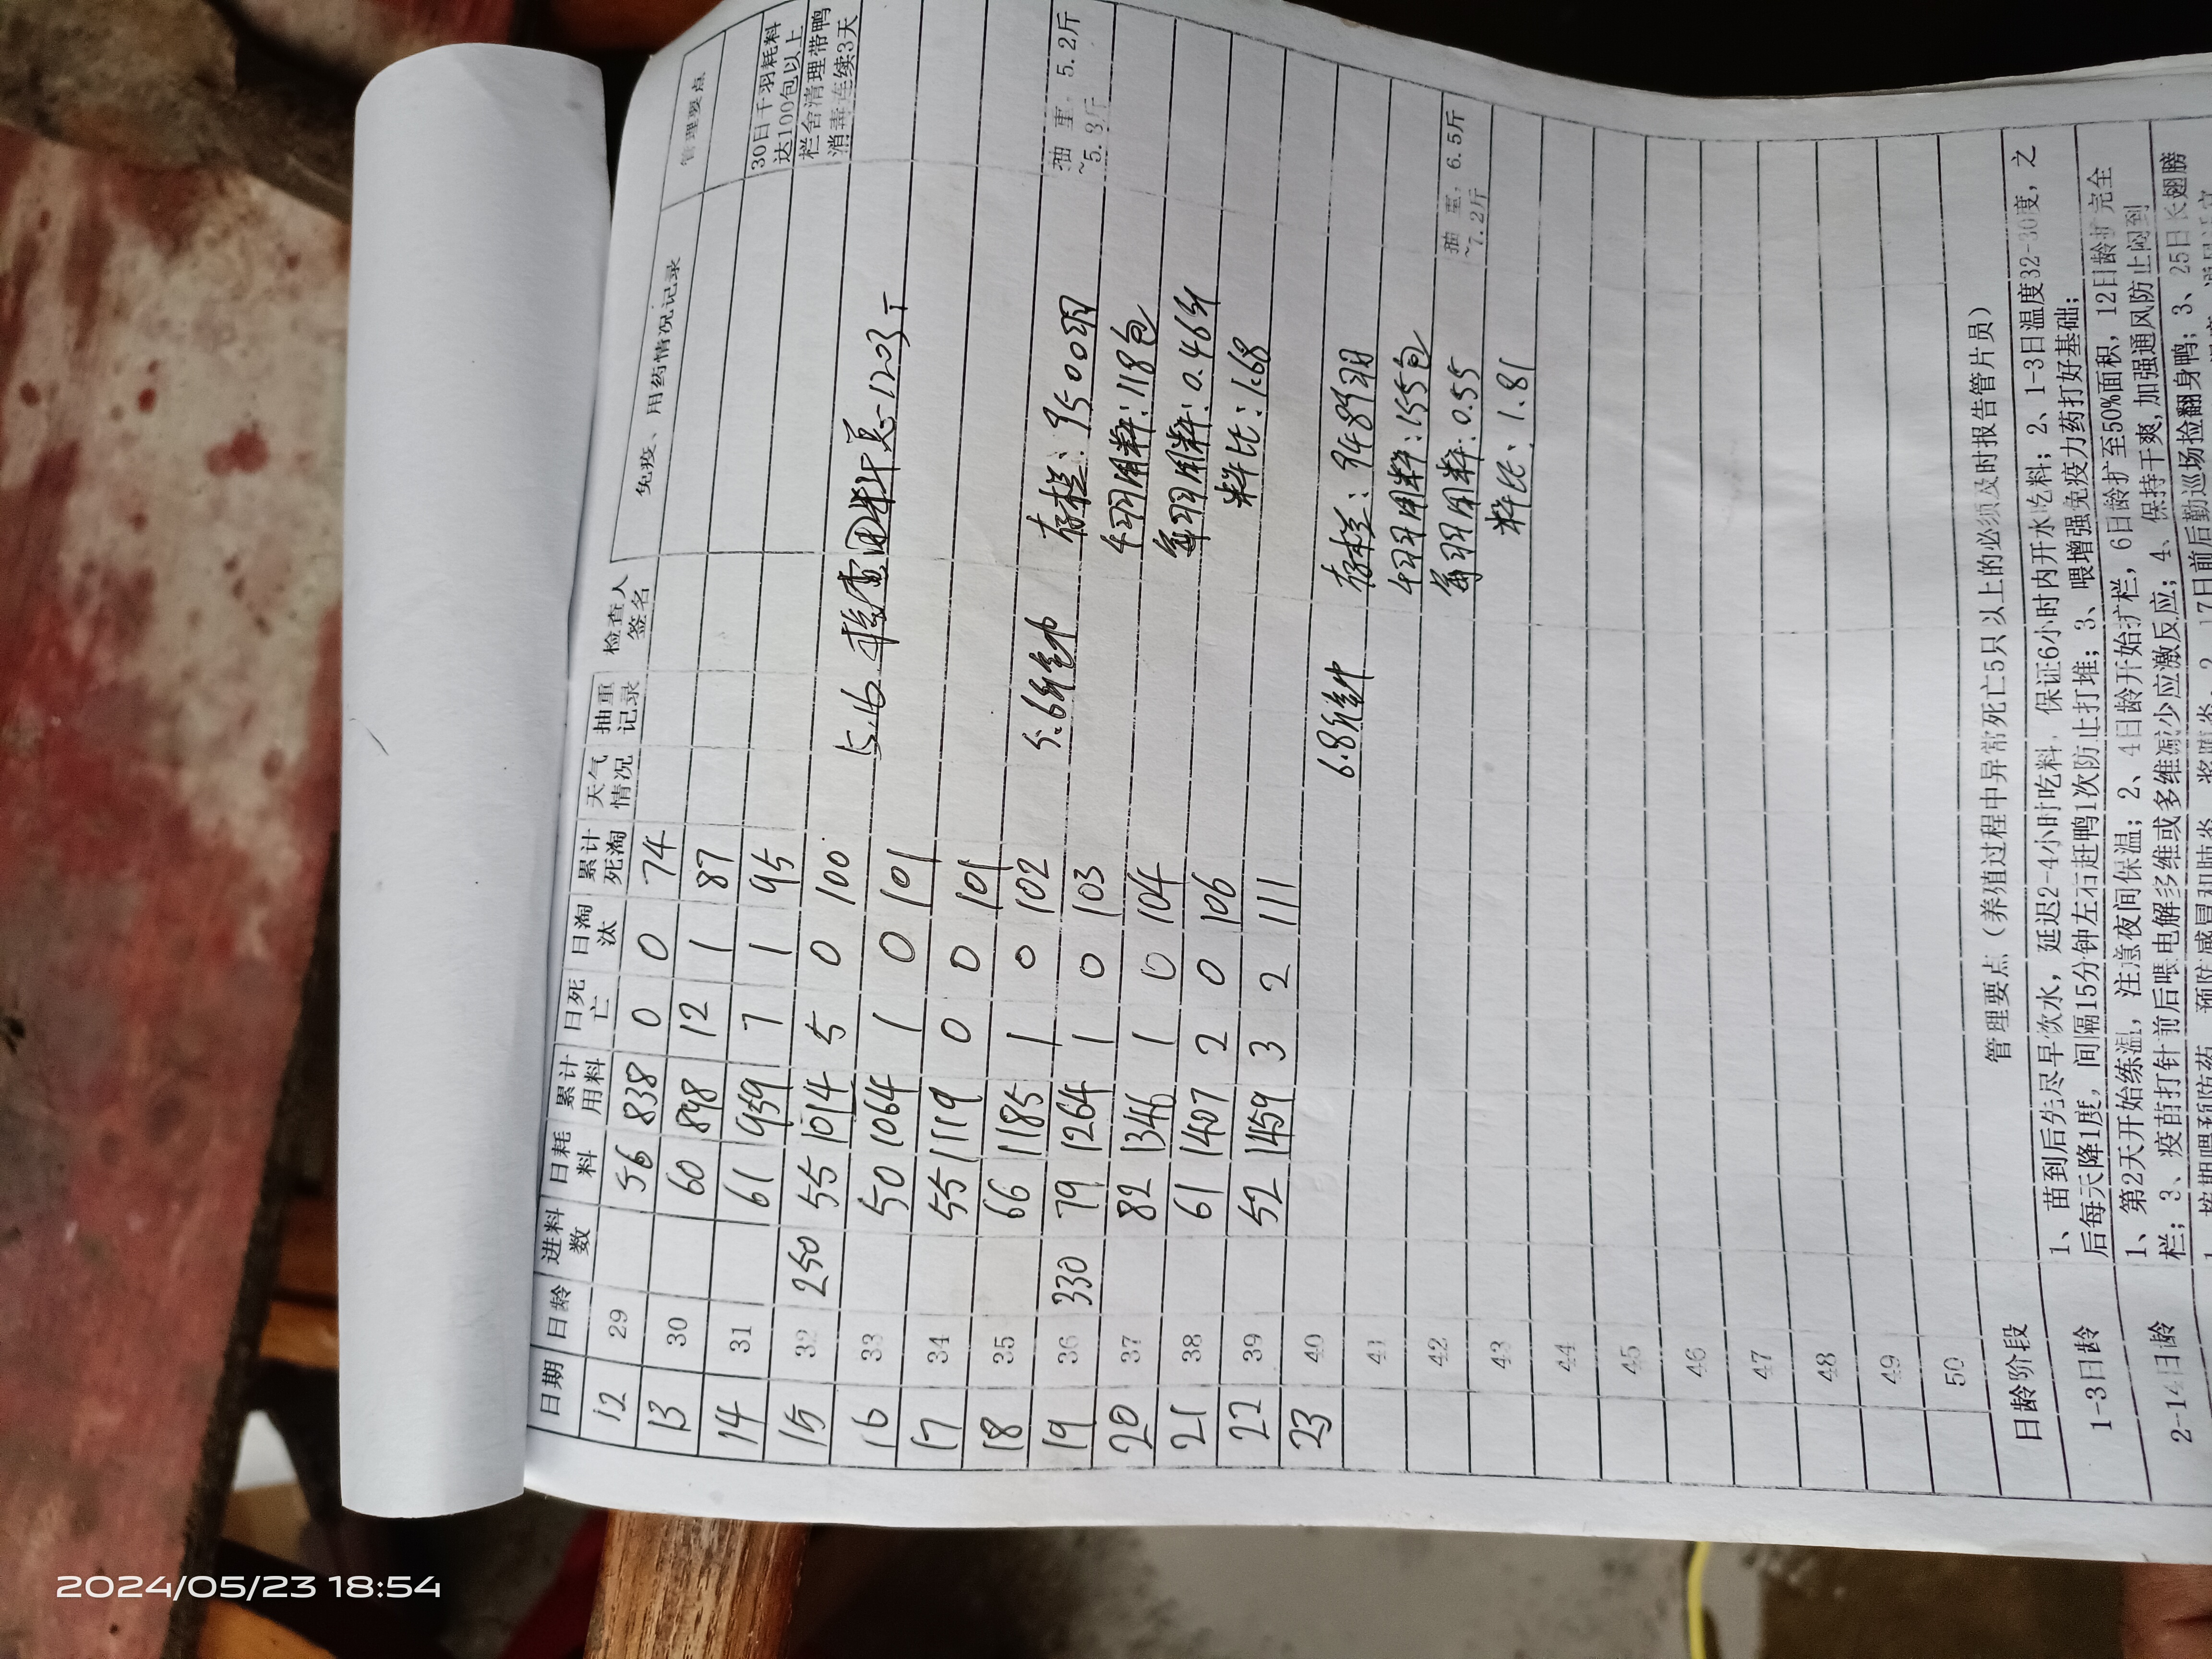 日期 日龄 进料数 日耗料 累计用料 日死亡 日淘汰 累计死淘 天气情况 抽重记录 检查人签名 免疫、用药情况记录 管理要点
12 29 56 838 0 0 74
13 30 60 898 12 1 87
14 31 61 959 7 1 95 30日千羽耗料达100包以上
15 32 250 55 1014 5 0 100 栏舍清理带鸭消毒连续3天
16 33 50 1064 1 0 101 5.16
17 34 55 1119 0 0 101
18 35 66 1185 1 0 102
19 36 330 79 1264 1 0 103 5.6斤 存栏:9500羽 抽 重，5.2斤~5.8斤
20 37 82 1346 1 0 104 千羽用料:118包
21 38 61 1407 2 0 106 每羽用料:0.46斤
22 39 52 1459 3 2 111 料比:1.68
23 40
6.8斤 存栏:9489羽
41 千羽用料:155包
42 每羽用料:0.55 抽 重，6.5斤~7.2斤
43 料比:1.81
44
45
46
47
48
49
50
日龄阶段 管理要点（养殖过程中异常死亡5只以上的必须及时报告管片员）
1-3日龄 1、苗到后先尽早饮水，延迟2-4小时吃料，保证6小时内开水吃料；2、1-3日温度32-30度，之
后每天降1度，间隔15分钟左右赶鸭1次防止打堆；3、喂增强免疫力药打好基础；
2-14日龄 1、第2天开始练温，注意夜间保温；2、4日龄开始扩栏，6日龄扩至50%面积，12日龄扩完全
栏；3、疫苗打针前后喂电解多维或多维减少应激反应；4、保持干爽，加强通风防止闷到
17日前后勤巡场捡翻身鸭；3、25日长翅膀
2024/05/23 18:54